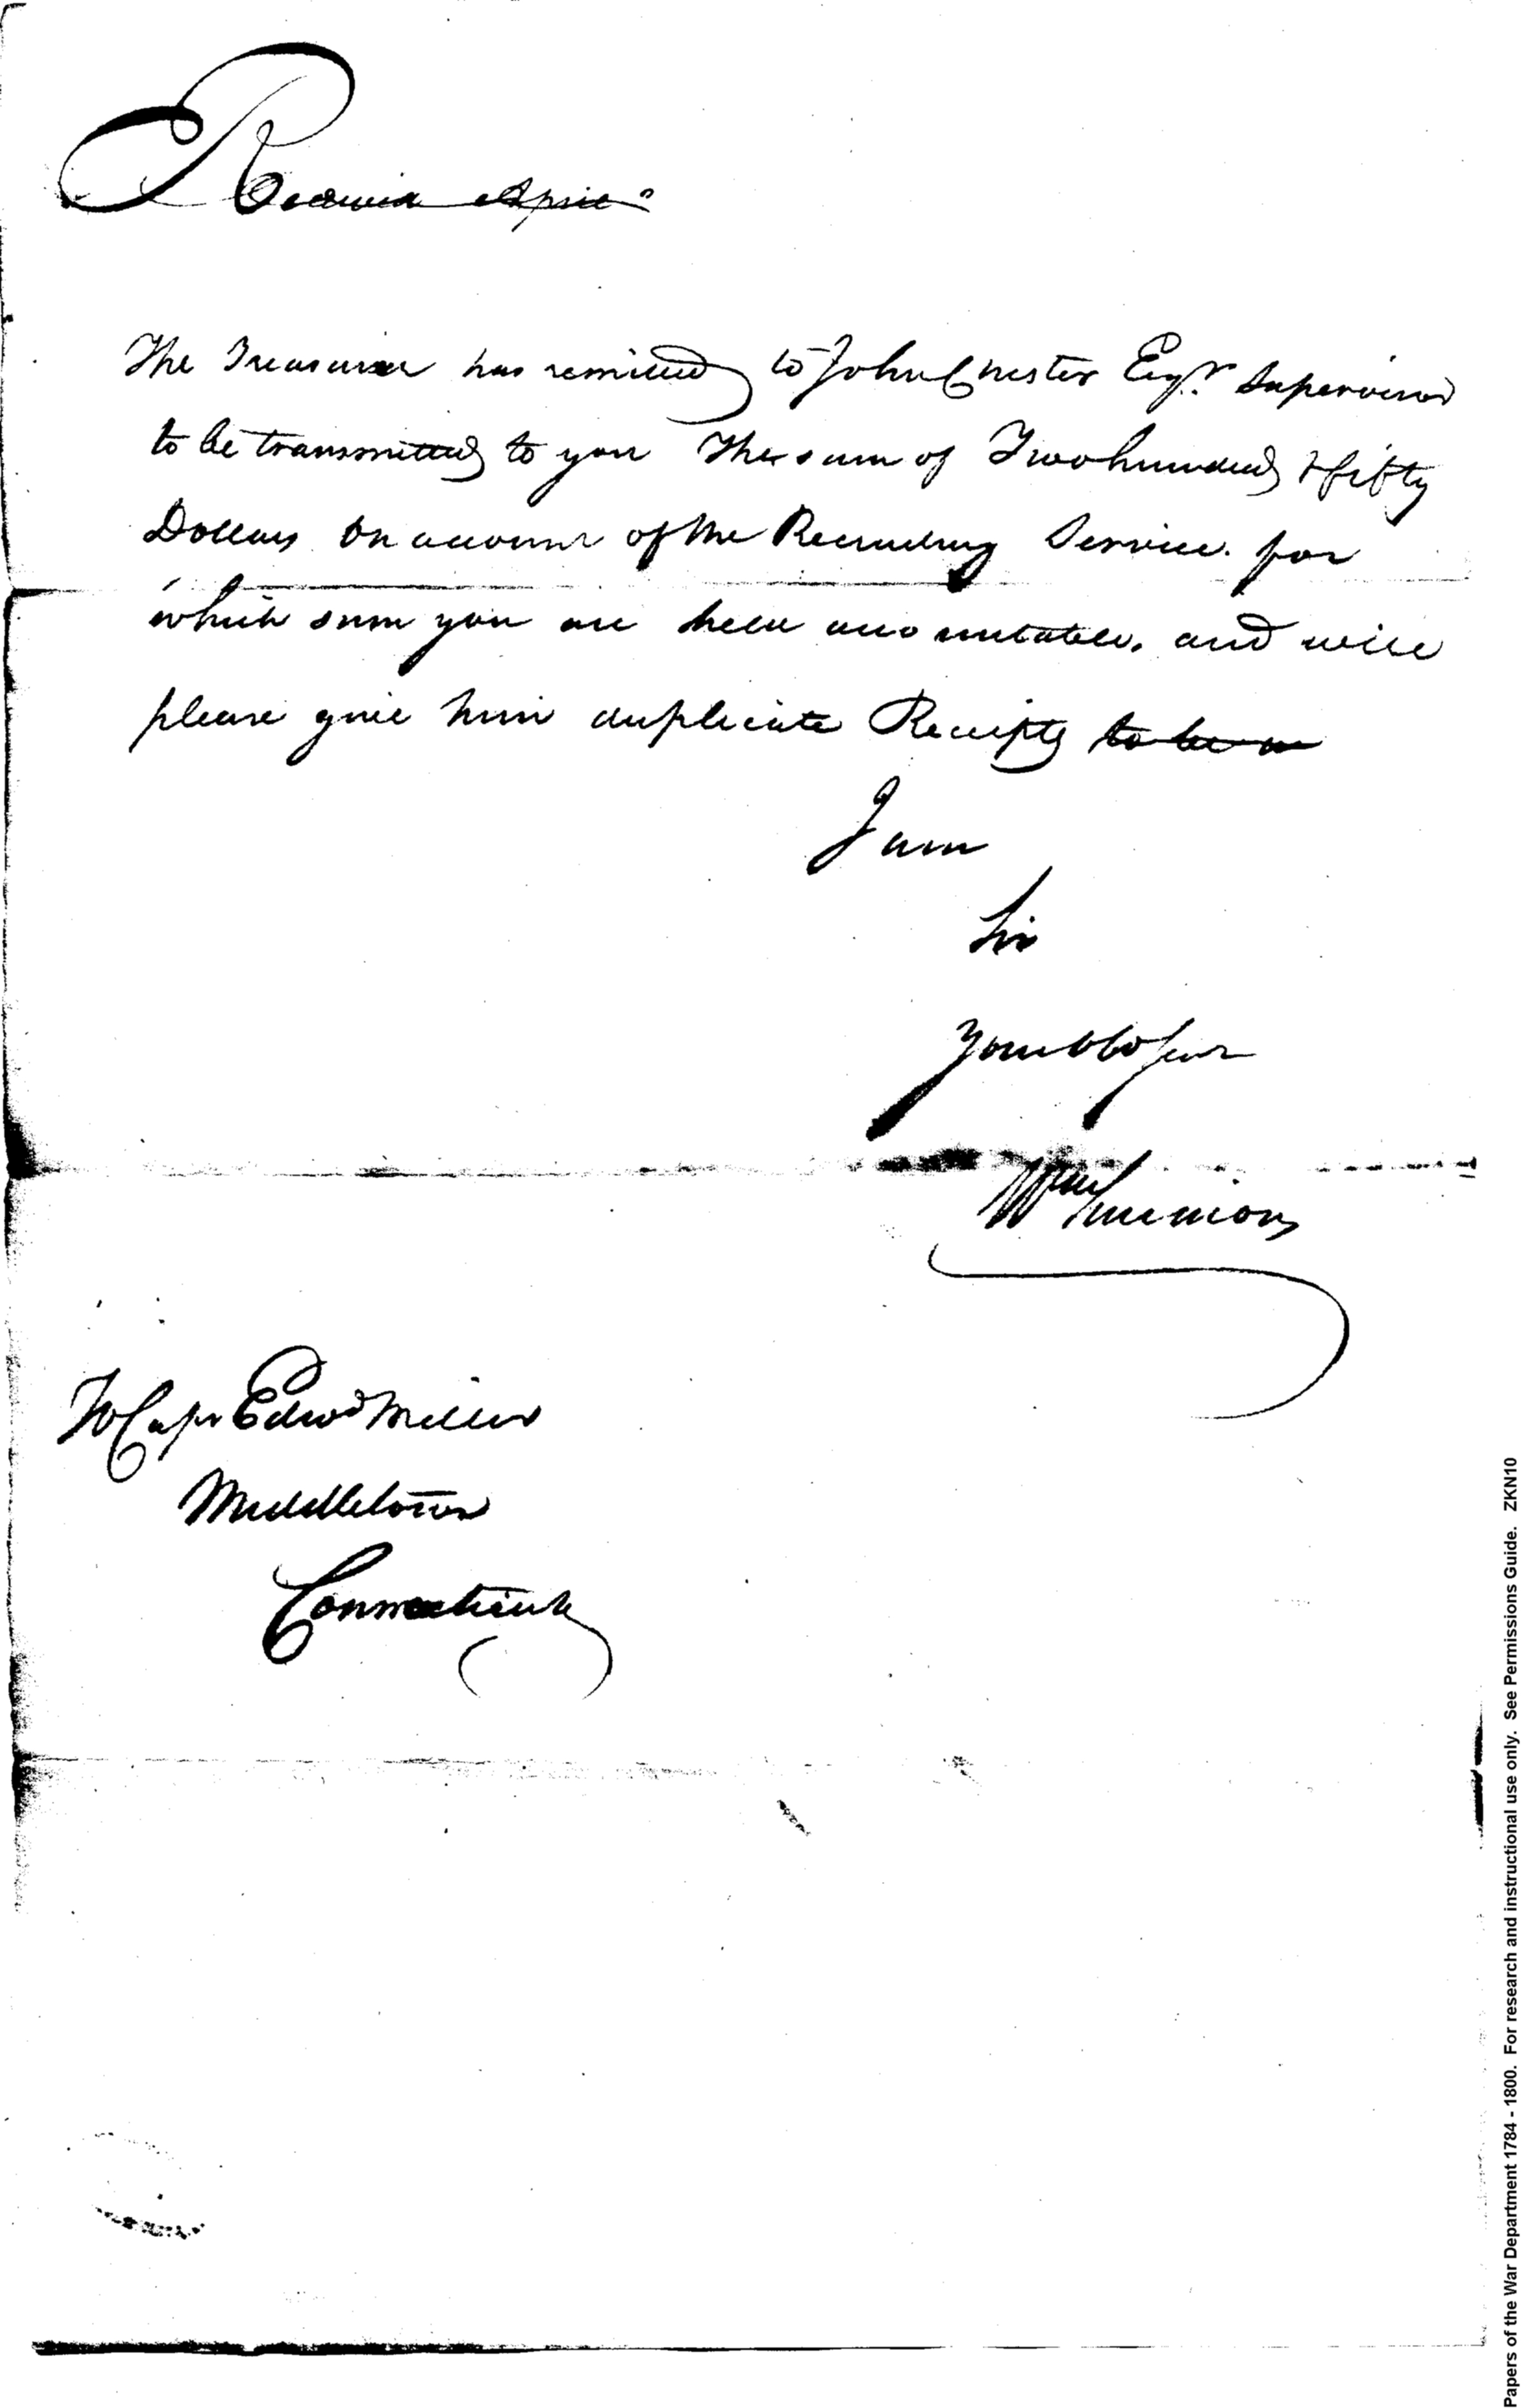 Received April
The Treasurer has remitted to John Chester Esqr. Supervisor
to be transmitted to you The sum of Two hundred & fifty
Dollars on account of the Recruiting Service. for
which sum you are held accountable. and will
please give him duplicate Receipts to be
I am
Sir
Your Obd Servt
Wm Simmons
To Capt Edwd Miller
Middletown
Connecticut
Papers of the War Department 1784 - 1800. For research and instructional use only. See Permissions Guide. ZKN10